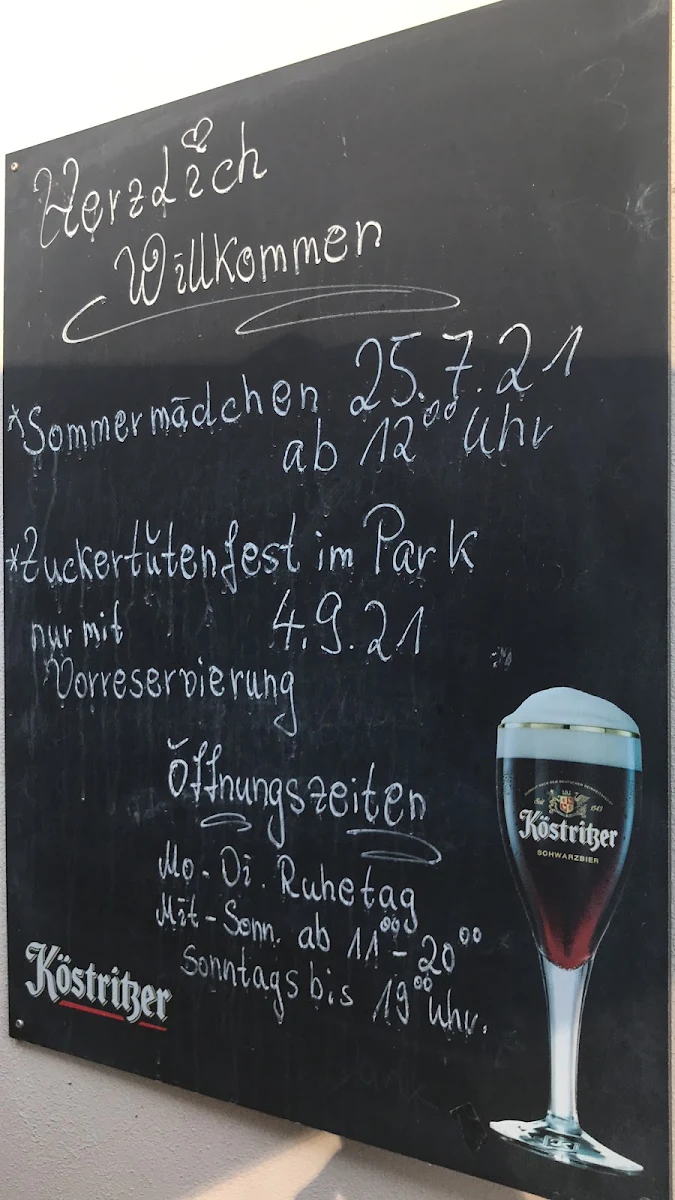 Herzlich
Willkommen
*Sommermädchen 25.7.21
ab 12⁰⁰ Uhr
*Zuckertütenfest im Park
nur mit 4.9.21
Vorreservierung
Öffnungszeiten
Mo-Di. Ruhetag
Mit-Sonn. ab 11⁰⁰-20⁰⁰
Sonntags bis 19⁰⁰ Uhr.
Köstritzer
Seit 1543
Köstritzer
SCHWARZBIER